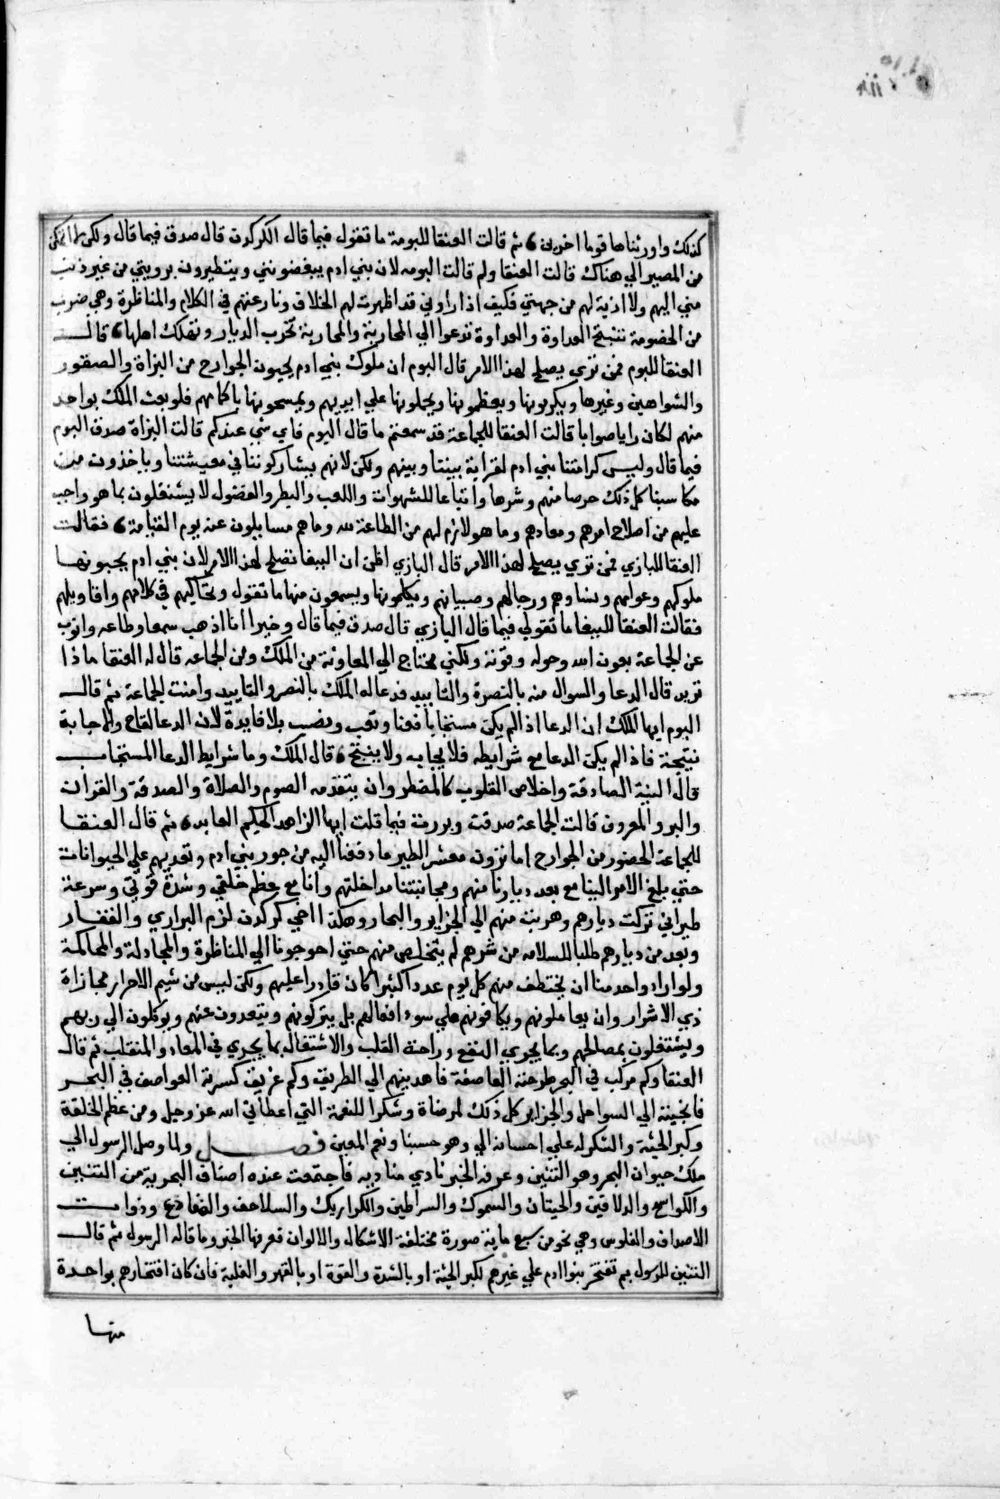 كذلك واورثناها قوما اخرين ثم قالت العنقا للبومة ما تقول فيما قال الكركدن قال صدق فيما قال ولكن لا يمكن
من المصير الي هناك قالت العنقا ولم قالت البومه لان بني ادم يبغضونني ويتطيرون برويتي من غير ذنب
مني اليهم ولا اذية لهم من جهتي فكيف اذا راوني قد اظهرت لهم الخلاف ونازعتهم في الكلام والمناظرة وهي ضرب
من الخصومة تنتج العداوة والعداوة تدعوا الي المحاربة والمحاربة تخرب الديار وتهلك اهلها قالت
العنقا للبوم فمن تري يصلح لهذا الامر قال البوم ان ملوك بني ادم يحبون الجوارح من البزاة والصقور
والشواهين وغيرها ويكرمونها ويعظمونها ويحملونها علي ايديهم ويمسحونها باكمامهم فلو بعث الملك بواحد
منهم لكان رايا صوابا قالت العنقا للجماعة قد سمعتم ما قال البوم فاي شي عندكم قالت البزاة صدق البوم
فيما قال وليس كرامتنا بني ادم لقرابة بيننا وبينهم ولكن لانهم يشاركوننا في معيشتنا وياخذون من
مكاسبنا كل ذلك حرصا منهم وشرها واتباعا للشهوات واللعب والبطر والفضول لا يشتغلون بما هو واجب
عليهم من اصلاح امرهم ومعادهم وما هو لازم لهم من الطاعة لله وما هم مسايلون عنه يوم القيامة فقالت
العنقا للبازي فمن تري يصلح لهذا الامر قال البازي اظن ان الببغا تصلح لهذا الامر لان بني ادم يحبونها
ملوكهم وعوامهم ونساوهم ورجالهم وصبيانهم ويكلمونها ويسمعون منها ما تقول وتحاكيهم في كلامهم واقاويلهم
فقالت العنقا للببغا ما تقولي فيما قال البازي قال صدق فيما قال وخيرا انا اذهب سمعا وطاعه وانوب
عن الجماعة بعون الله وحوله وقوته ولكني محتاج الي المعاونة من الملك ومن الجماعه قال له العنقا ماذا
تريد قال الدعا والسوال منه بالنصرة والتاييد فدعا له الملك بالنصر والتاييد وامنت الجماعة ثم قال
البوم ايها الملك ان الدعا اذا لم يكن مستجابا فعنا وتعب ونصب بلا فايدة لان الدعا لقاح والاجابة
نتيجة فاذا لم يكن الدعا مع شرايطه فلا يجاب ولا ينتج قال الملك وما شرايط الدعا المستجاب
قال النية الصادقة واخلاص القلوب كالمضطر وان يتقدمه الصوم والصلاة والصدقة والقران
والبر والمعروف قالت الجماعة صدقت وبررت فيما قلت ايها الزاهد الحكيم العابد ثم قال العنقا
للجماعة الحضور من الجوارح اما ترون معشر الطير ما دفعنا اليه من جور بني ادم وتعديهم علي الحيوانات
حتي بلغ الامر الينا مع بعد ديارنا منهم ومجانبتنا مداخلتهم وانا مع عظم خلقي وشدة قوتي وسرعة
طيراني تركت ديارهم وهربت منهم الي الجزاير والبحار وهكذا اخي كركدن لزم البراري والقفار
وبعد من ديارهم طلبا للسلامه من شرهم لم يتخلص منهم حتي احوجونا الي المناظرة والمجادلة والمحاكمة
ولو اراد واحد منا ان يختطف منهم كل يوم عددا كثيرا كان قادرا عليهم ولكن ليس من شيم الاحرار مجازاة
ذي الاشرار وان يعاملونهم ويكافونهم علي سوء افعالهم بل يتركونهم ويتبعدون عنهم ويوكلون الي ربهم
ويشتغلون بمصالحهم وبما يجدي النفع وراحة القلب والاشتغال بما يجدي في المعاد والمنقلب ثم قال
العنقا وكم مركب في البحر طرحته العاصفة فاهديتهم الي الطريق وكم غريق كسرته العواصف في البحر
فانجيته الي السواحل والجزاير كل ذلك لمرضاة وشكرا للنعمة التي اعطاني الله عز وجل ومن عظم الخلقة
وكبر الجثة والشكر له علي احسانه الي وهو حسبنا ونعم المعين فصل ولما وصل الرسول الي
ملك حيوان البحر وهو التنين وعرفه الخبر نادي مناديه فاجتمعت عنده اصناف البحرية من التنين
والكواسج والدلافين والحيتان والسموك والسراطين والكواريك والسلاحف والضفادع وذوات
الاصداف والفلوس وهي نحو من سبع ماية صورة مختلفة الاشكال والالوان فعرفها الخبر وما قاله الرسول ثم قال
التنين للرسول بم تفتخر بنوا ادم علي غيرهم بكبر الجثة او بالشدة والقوة او بالقهر والغلبة فان كان افتخارهم بواحدة
منها